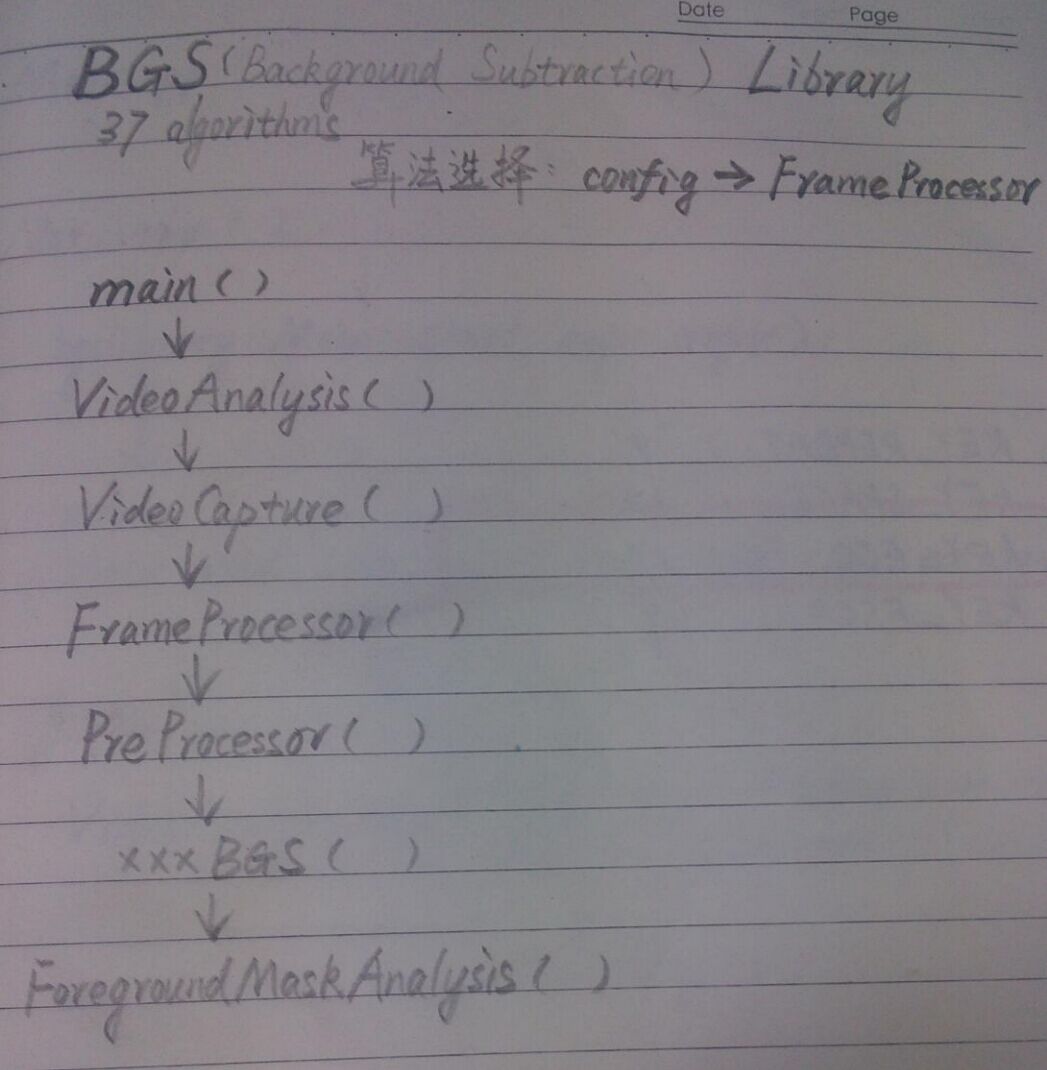 Date Page
BGS (Background Subtraction) Library
37 algorithms
算法选择: config → FrameProcessor
main ( )
↓
VideoAnalysis ( )
↓
VideoCapture ( )
↓
FrameProcessor ( )
↓
PreProcessor ( )
↓
xxxBGS ( )
↓
ForegroundMaskAnalysis ( )